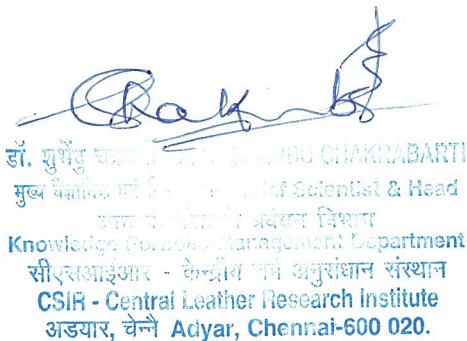 Chakrabarti
डॉ. शुभेंदु CHAKRABARTI
मुख्य वैज्ञानिक एवं Chief Scientist & Head
प्रबंधन विभाग
Knowledge Portfolio Management Department
सीएसआईआर - केन्द्रीय चर्म अनुसंधान संस्थान
CSIR - Central Leather Research Institute
अडयार, चेन्नै Adyar, Chennai-600 020.